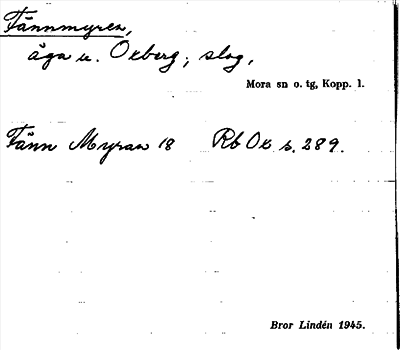 Tännmyren,
äga u. Oxberg, slog,
Mora sn o. tg, Kopp. l.
Tänn Myran 18 Rb Ox s. 289.
Bror Lindén 1945.